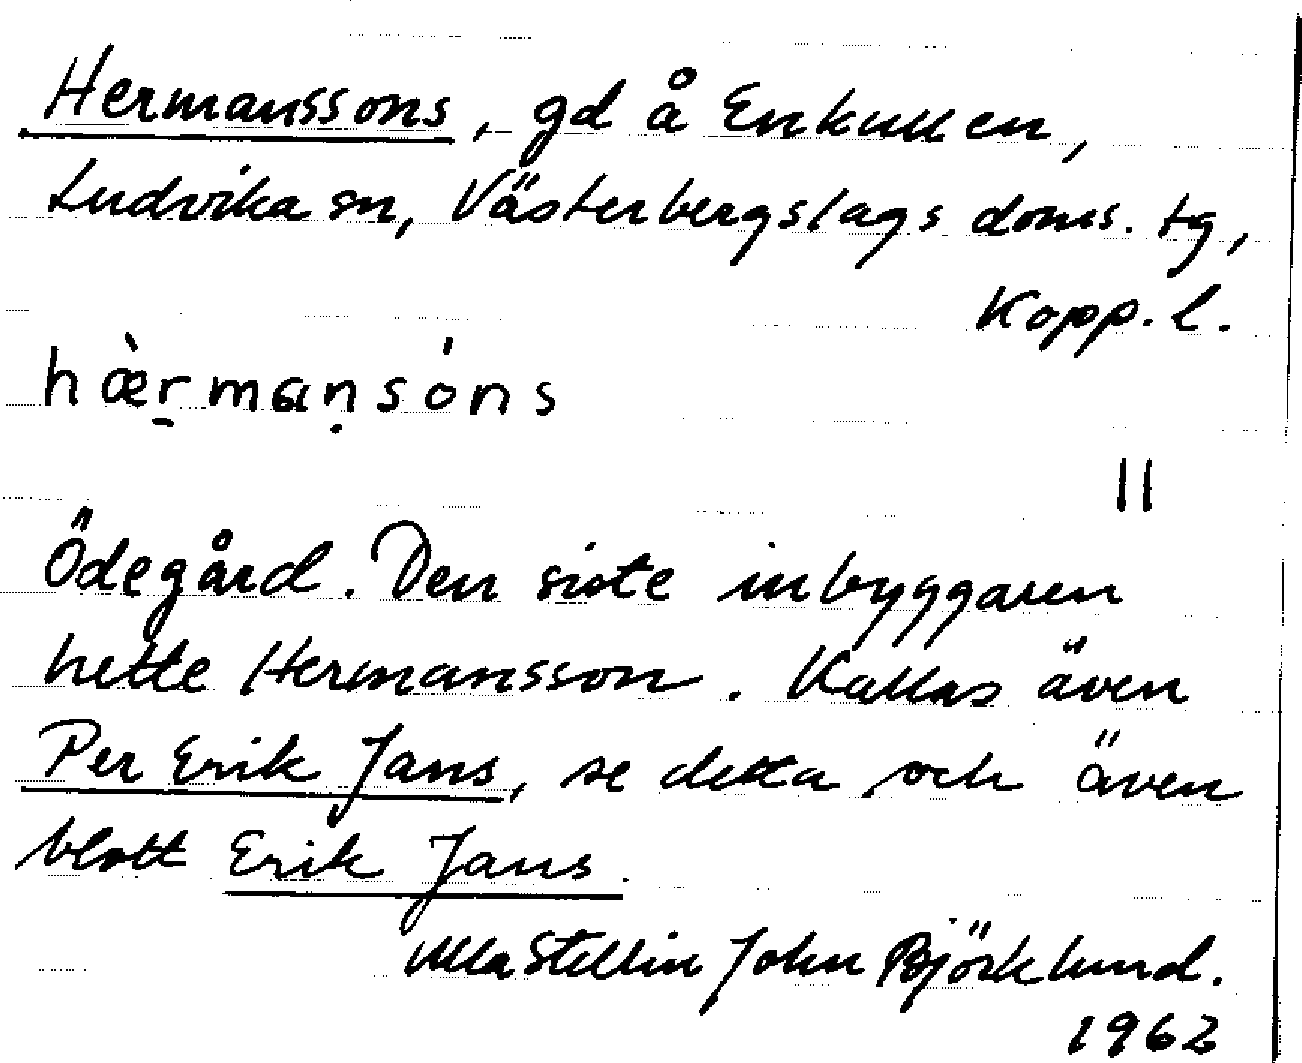 Hermanssons, gd å Enkullen,
Ludvika sn, Västerbergslags doms. tg,
Kopp. l.
hæ̀r̠maṇsȯ́ns
||
Ödegård. Den siste inbyggaren
hette Hermansson. Kallas även
Per Erik Jans, se detta och även
blott Erik Jans.
Ulla Stellin John Björklund.
1962